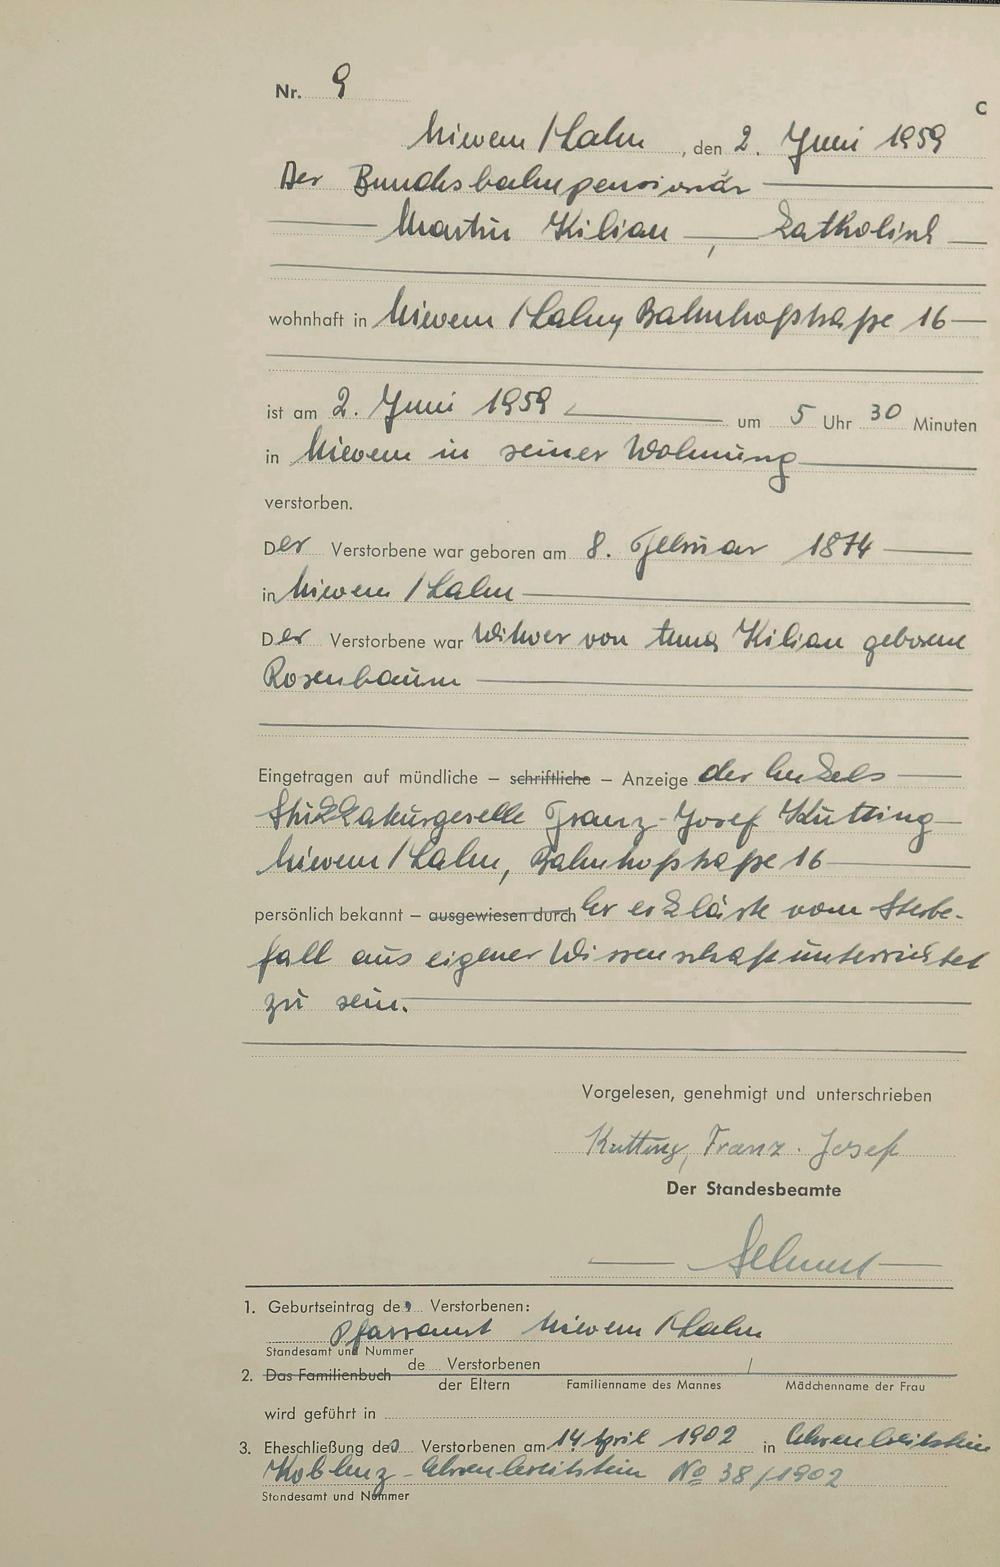 Nr. 9
C
Nievern / Lahn, den 2. Juni 1959
Der Bundesbahnpensionär
Martin Kilian, katholisch
wohnhaft in Nievern / Lahn, Bahnhofstraße 16
ist am 2. Juni 1959 um 5 Uhr 30 Minuten
in Nievern in seiner Wohnung
verstorben.
Der Verstorbene war geboren am 8. Februar 1874
in Nievern / Lahn
Der Verstorbene war Witwer von Anna Kilian geborene
Rosenbaum
Eingetragen auf mündliche – schriftliche – Anzeige des Enkels
Stukkateurgeselle Franz-Josef Kutting
Nievern / Lahn, Bahnhofstraße 16
persönlich bekannt – ausgewiesen durch Er erklärte vom Sterbe-
fall aus eigener Wissenschaft unterrichtet
zu sein.
Vorgelesen, genehmigt und unterschrieben
Kutting, Franz-Josef
Der Standesbeamte
1. Geburtseintrag des Verstorbenen:
Pfarramt Nievern / Lahn
Standesamt und Nummer
2. Das Familienbuch de Verstorbenen /
der Eltern Familienname des Mannes Mädchenname der Frau
wird geführt in
3. Eheschließung des Verstorbenen am 14 April 1902 in Ehrenbreitstein
Koblenz-Ehrenbreitstein No 38/1902
Standesamt und Nummer